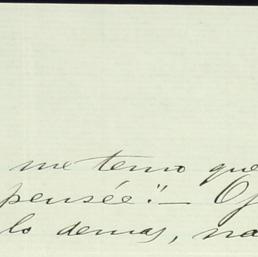 me temo que
pensée". —
lo demas, na